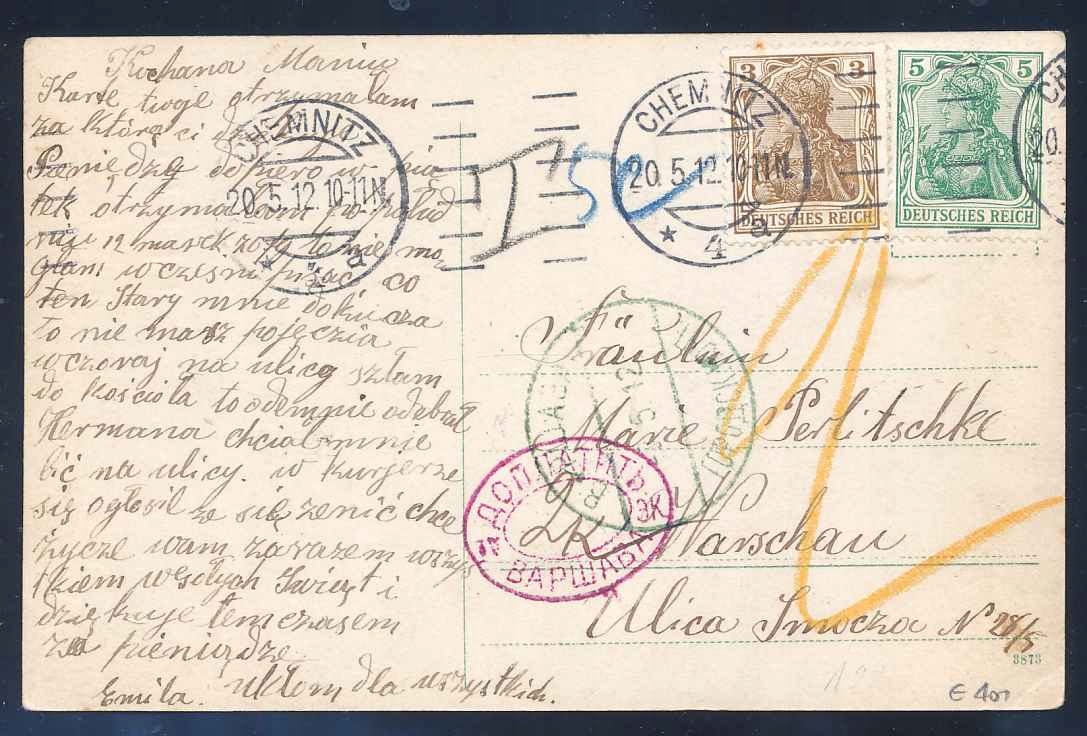 Kochana Maniu
Karte twoje otrzymalam
za którą ci
Pieniedzy dopiero w
tek otrzymałam
12 marek zoty to nie mo
glam wczesni pisac co
ten Stary mnie dokucza
to nie masz pojęczia
wczoraj na ulicy szłam
do kościola to odemnie odebrał
Hermana chciał mnie
bić na ulicy. w kurjerze
się ogłosil ze się zenić chce
życze wam zarazem wszys
tkiem wesołych Swiąt i
dziękuje temczasem
za pieniądze
Emila. Ukłom dla wszystkich.
CHEMNITZ
20.5.12.10-11N.
* 4 a
CHEMNITZ
20.5.12.10-11N.
* 4 a
3 3
DEUTSCHES REICH
5 5
DEUTSCHES REICH
CH
20.
T
Fräulein
Marie Perlitschke
Warschau
Ulica Smocza N 28/5
ДОПЛАТИТЬ
ВАРШАВА
2K
3873
E 400